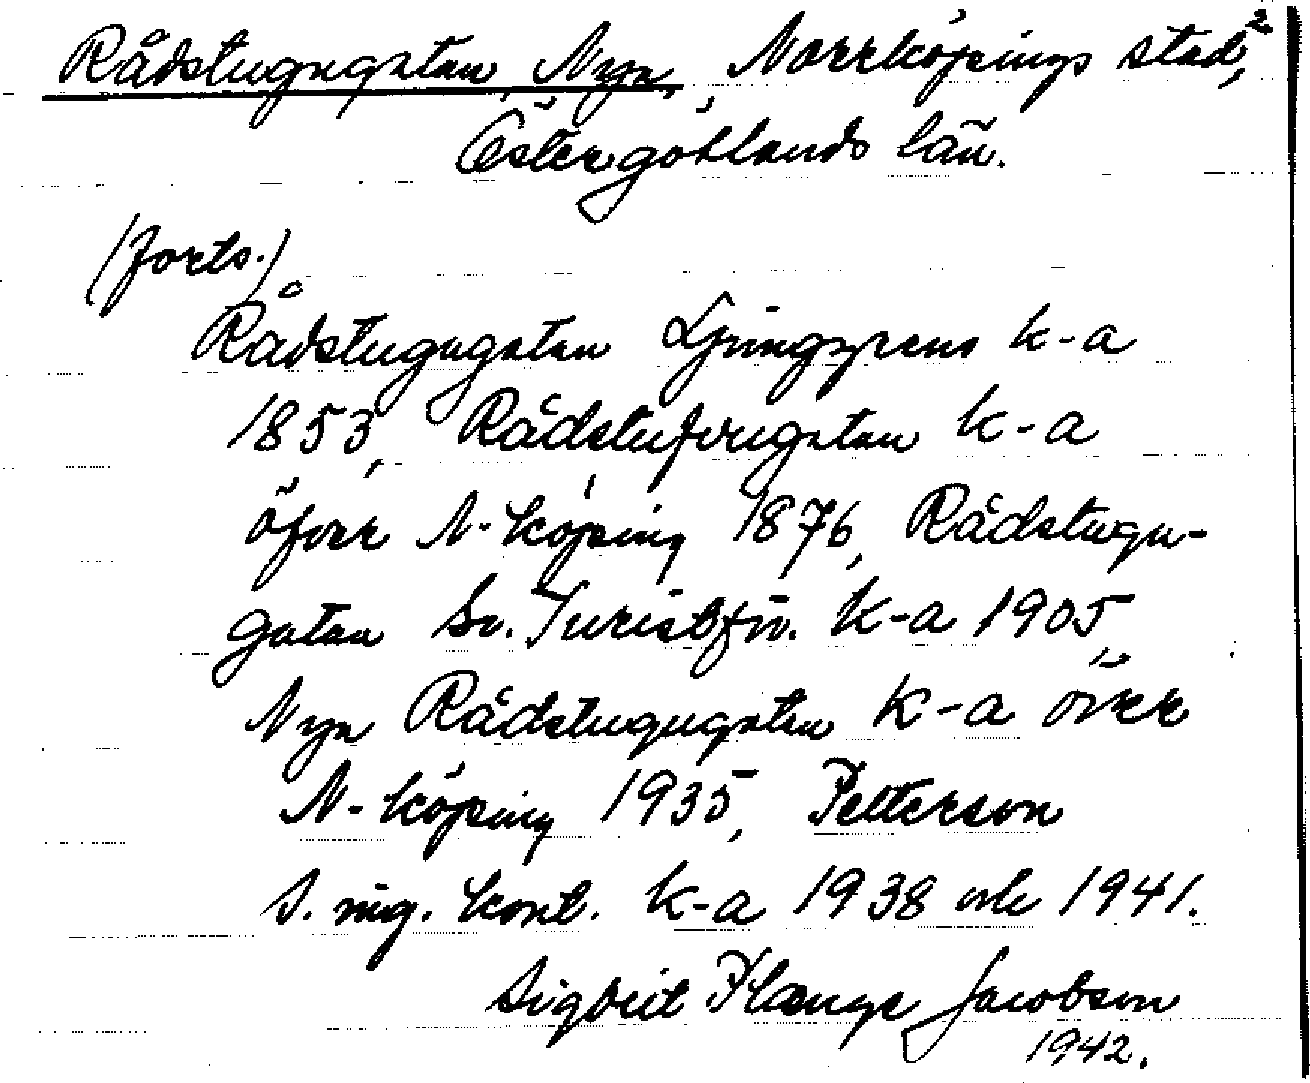 Rådstugugatan, Nya, Norrköpings stad, 2
Östergötlands län.
(forts.)
Rådstugugatan Ljunggrens k-a
1853, Rådstufvugatan k-a
öfver N-köping 1876, Rådstugu-
gatan Sv. Turistför. k-a 1905,
Nya Rådstugugatan k-a över
N-köping 1935, Petterson
S. ing. kont. k-a 1938 och 1941.
Sigbrit Plænge Jacobson
1942.